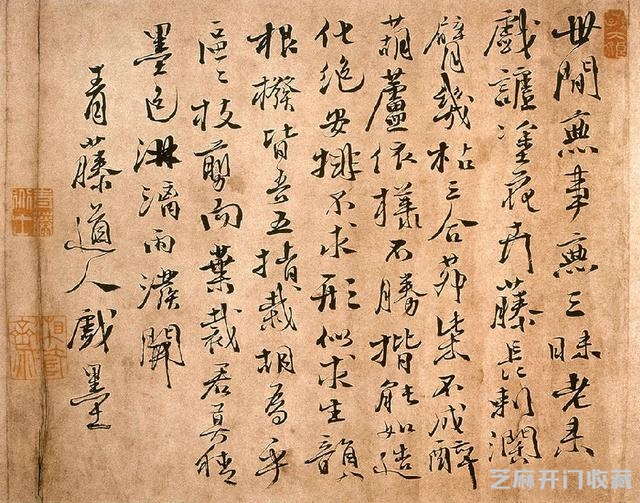 世間無事無三昧老来
戲謔塗花卉藤長刺濶
臂幾枯三合茆柴不成醉
葫蘆依樣不勝揩能如造
化絕安排不求形似求生韻
根撥皆吾五指栽胡為乎
區〻枝剪而葉裁君莫猜
墨色淋漓雨潑開
青藤道人戲墨
芝麻开门收藏